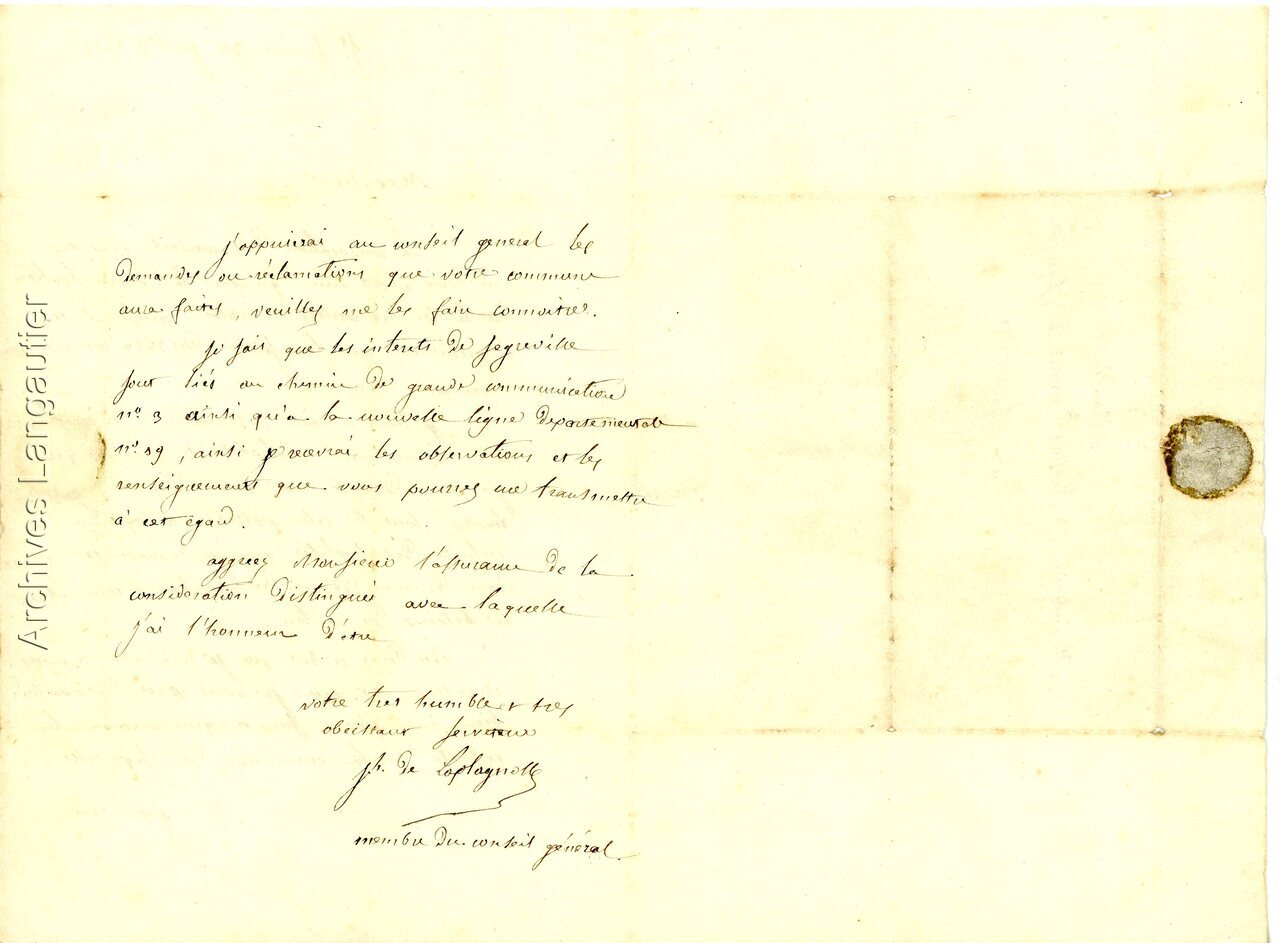 j'appuierai au conseil general les
demandes ou réclamations que votre commune
aura faites, veuilles me les faire connoitre.
je sais que les interets de Segreville
sont liés au chemin de grande communication
n° 3 ainsi qu'a la nouvelle ligne departementale
n° 19, ainsi je recevrai les observations et les
renseignement que vous pourres me transmettre
à cet égard.
aggreez Monsieur l'assurance de la
consideration distinguée avec laquelle
j'ai l'honneur d'etre
votre tres humble et tres
obeissant serviteur
ph. de Laplagnolle
membre du conseil général
Archives Langautier